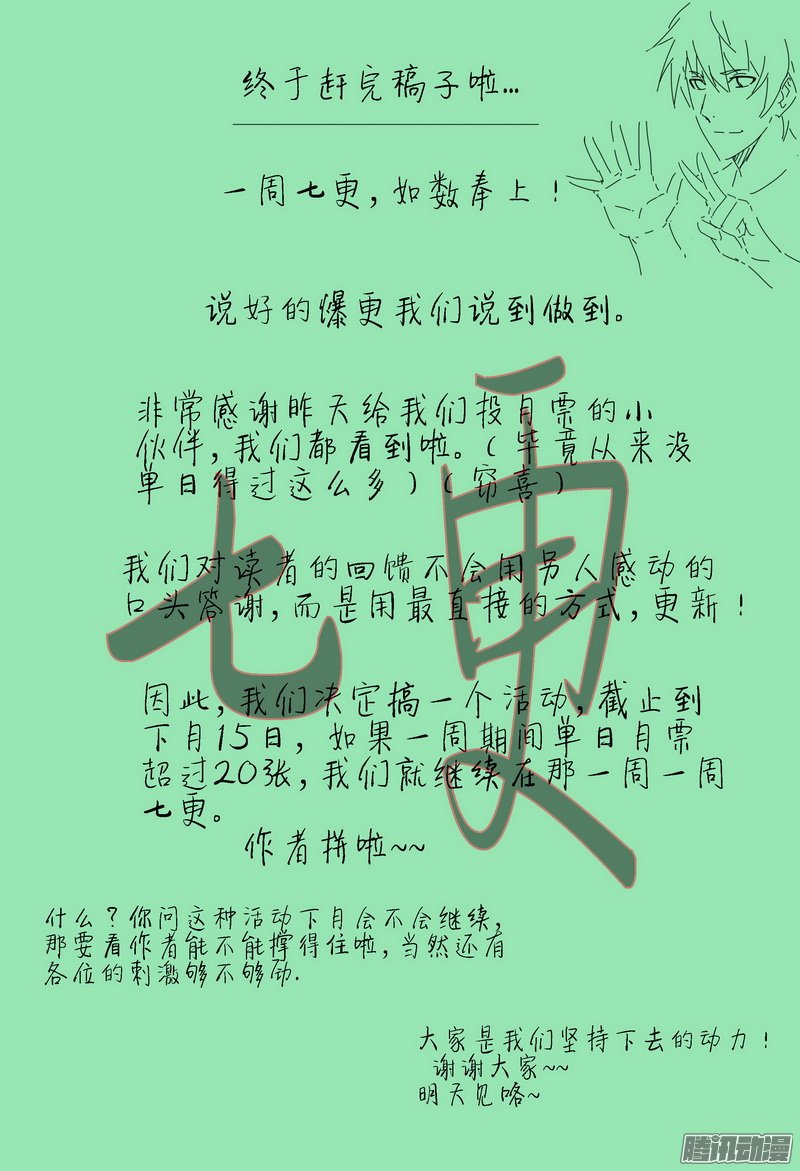 终于赶完稿子啦…
一周七更，如数奉上！
说好的爆更我们说到做到。
非常感谢昨天给我们投月票的小
伙伴，我们都看到啦。（毕竟从来没
单日得过这么多）（窃喜）
我们对读者的回馈不会用另人感动的
口头答谢，而是用最直接的方式，更新！
因此，我们决定搞一个活动，截止到
下月15日，如果一周期间单日月票
超过20张，我们就继续在那一周一周
七更。
作者拼啦~~
七更
什么？你问这种活动下月会不会继续，
那要看作者能不能撑得住啦，当然还有
各位的刺激够不够劲.
大家是我们坚持下去的动力！
谢谢大家~~
明天见咯~
腾讯动漫